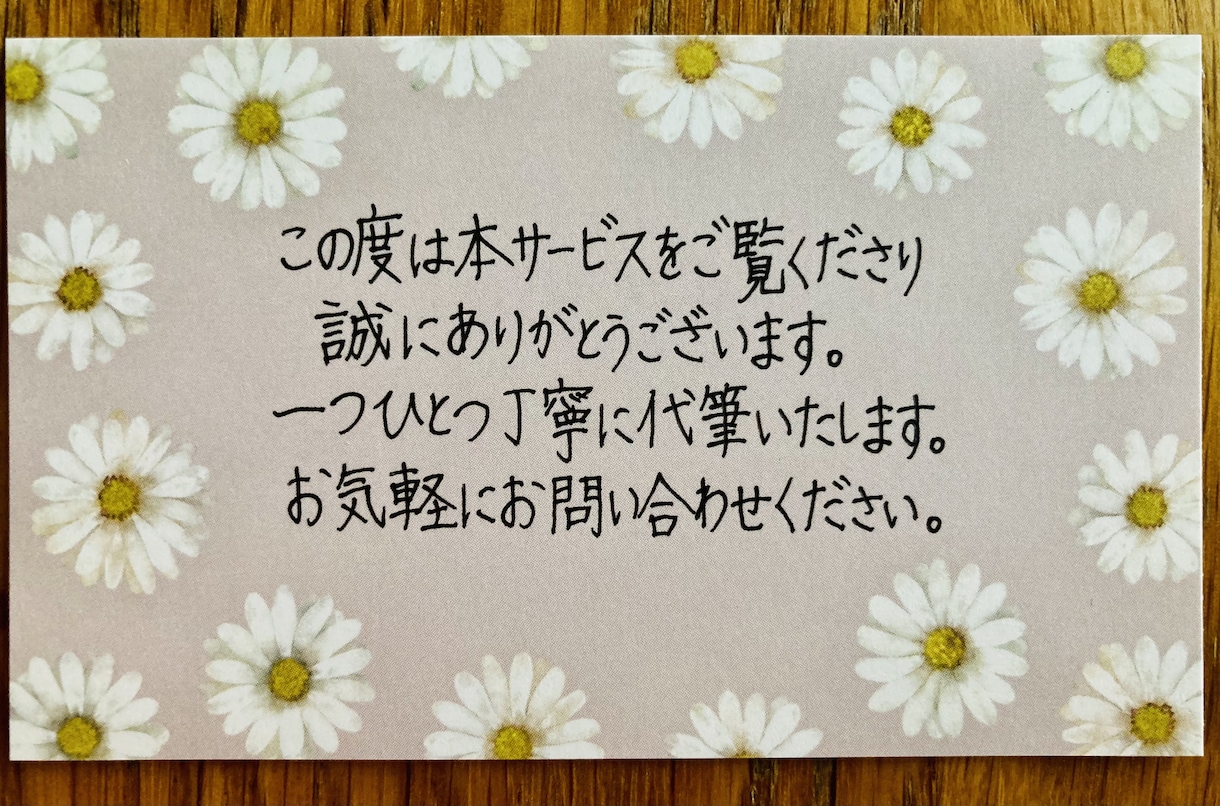 この度は本サービスをご覧くださり
誠にありがとうございます。
一つひとつ丁寧に代筆いたします。
お気軽にお問い合わせください。